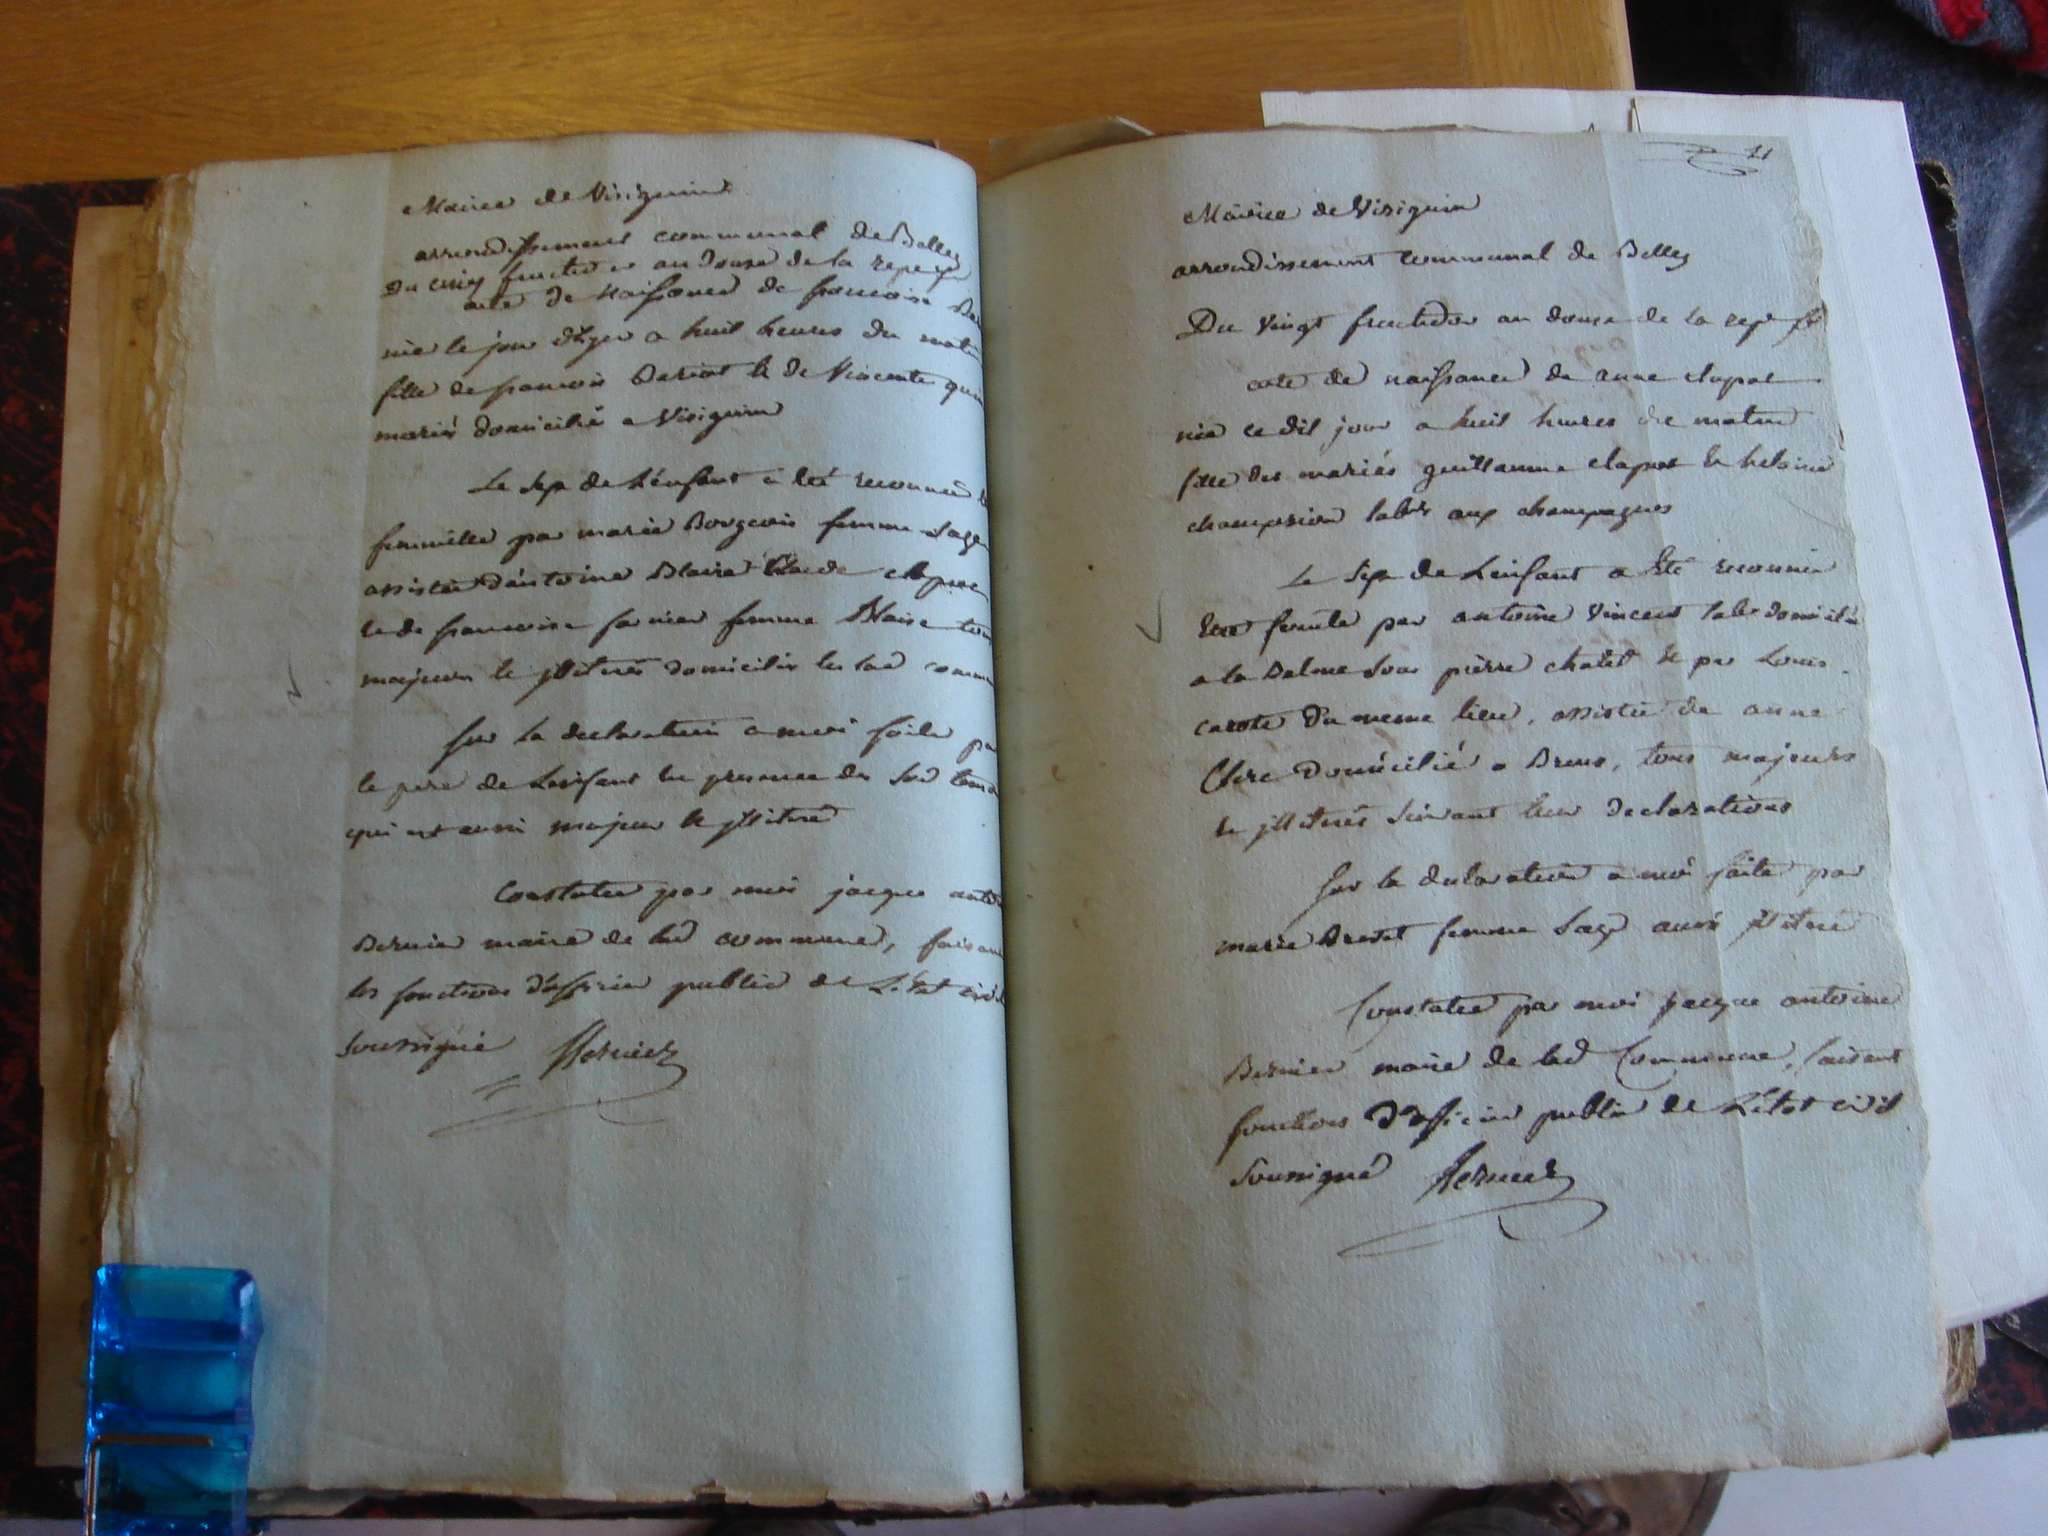 Mairie de Virignin
arrondissement communal de Belley
Du cinq fructidor an douze de la rep
acte de Naissance de francoise
née le jour d'hyer a huit heures du matin
fille de francois Dariot & de Vincente
mariés domicilié a Virignin
Le sexe de L'enfant a été reconnu
femmelle par marie Borgeois femme sage
assistée d'antoine Blaise Claude
& de francoise femme Blaise
majeurs & illitrés domiciliés
Sur la declaration a moi faite
le pere de L'enfant en presence des
qui est aussi majeur & illitré
Constatée par moi jacque
Bernier maire de lad commune, faisant
les fonctions d'officier public de L'Etat civil
Soussigné Bernier
11
Mairie de Virignin
arrondissement communal de Belley
Du vingt fructidor an douze de la rep fr
acte de naissance de anne clapot
née ce dit jour a huit heures du matin
fille des mariés guillaume clapot &
champion labr aux champagnes
Le sexe de L'enfant a Eté reconnu
Etre par antoine Vincent labr domicilié
a la Balme sous pierre chatel & par Louis
du meme lieu, assistée de anne
Clerc domicilié a Brens, tous majeurs
& illitrés suivant leur declarations
Sur la declaration a moi faite par
marie femme sage aussi illitrée
Constatée par moi jacque antoine
Bernier maire de lad Commune, faisant
fonctions d'officier public de L'etat civil
Soussigné Bernier